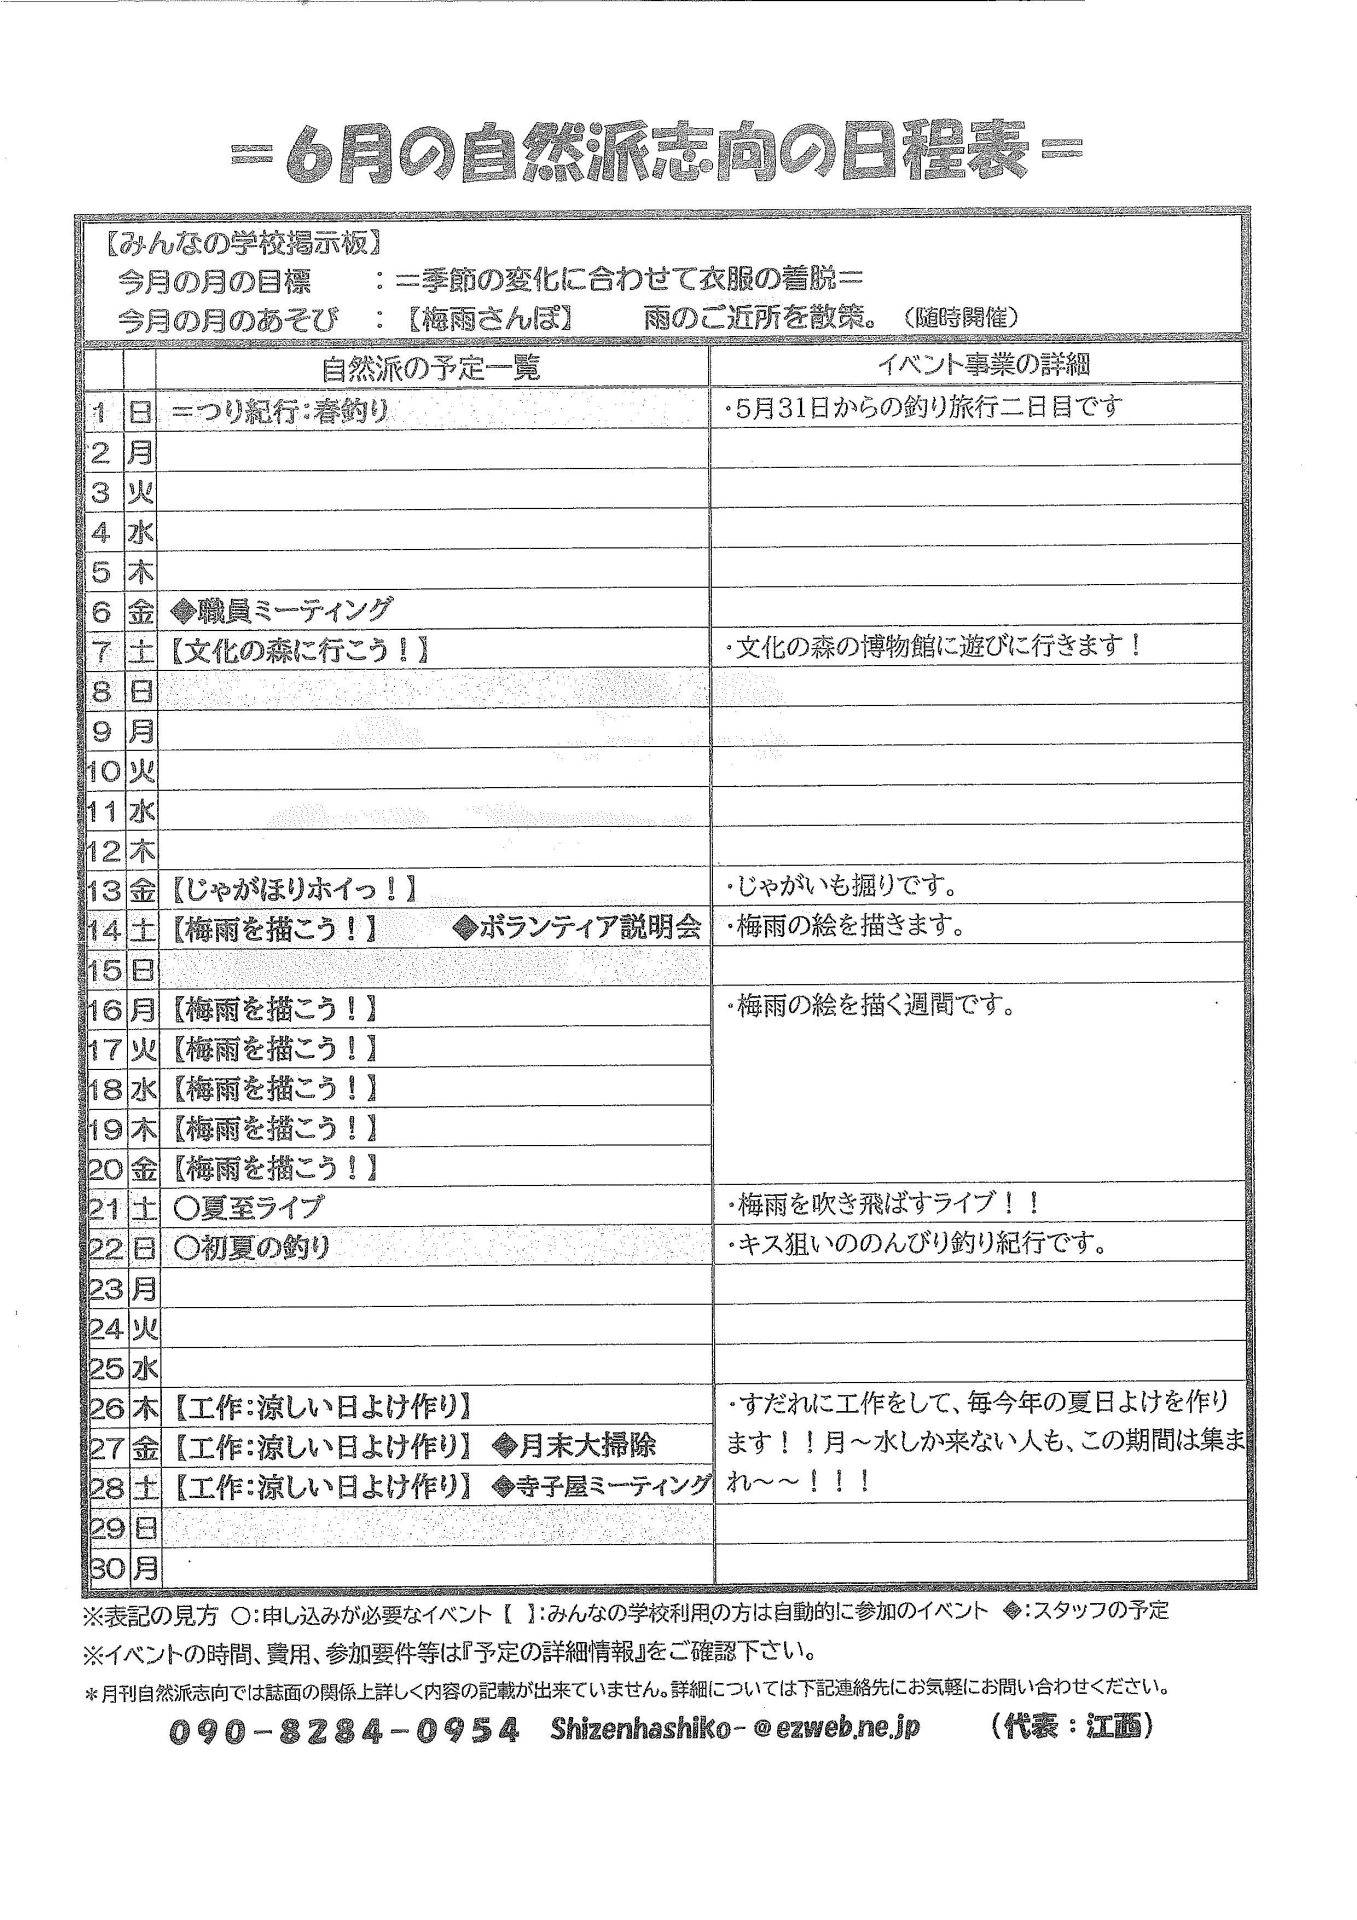 =6月の自然派志向の日程表=
【みんなの学校掲示板】
今月の月の目標 :=季節の変化に合わせて衣服の着脱=
今月の月のあそび :【梅雨さんぽ】 雨のご近所を散策。(随時開催)
自然派の予定一覧 イベント事業の詳細
1 日 =つり紀行:春釣り ・5月31日からの釣り旅行二日目です
2 月
3 火
4 水
5 木
6 金 ◆職員ミーティング
7 土 【文化の森に行こう!】 ・文化の森の博物館に遊びに行きます!
8 日
9 月
10 火
11 水
12 木
13 金 【じゃがほりホイっ!】 ・じゃがいも掘りです。
14 土 【梅雨を描こう!】 ◆ボランティア説明会 ・梅雨の絵を描きます。
15 日
16 月 【梅雨を描こう!】 ・梅雨の絵を描く週間です。
17 火 【梅雨を描こう!】
18 水 【梅雨を描こう!】
19 木 【梅雨を描こう!】
20 金 【梅雨を描こう!】
21 土 ○夏至ライブ ・梅雨を吹き飛ばすライブ!!
22 日 ○初夏の釣り ・キス狙いののんびり釣り紀行です。
23 月
24 火
25 水
26 木 【工作:涼しい日よけ作り】 ・すだれに工作をして、毎今年の夏日よけを作り
27 金 【工作:涼しい日よけ作り】 ◆月末大掃除 ます!!月~水しか来ない人も、この期間は集ま
28 土 【工作:涼しい日よけ作り】 ◆寺子屋ミーティング れ~~!!!
29 日
30 月
※表記の見方 ○:申し込みが必要なイベント【 】:みんなの学校利用の方は自動的に参加のイベント ◆:スタッフの予定
※イベントの時間、費用、参加要件等は『予定の詳細情報』をご確認下さい。
*月刊自然派志向では誌面の関係上詳しく内容の記載が出来ていません。詳細については下記連絡先にお気軽にお問い合わせください。
090-8284-0954 Shizenhashiko-@ezweb.ne.jp (代表:江西)